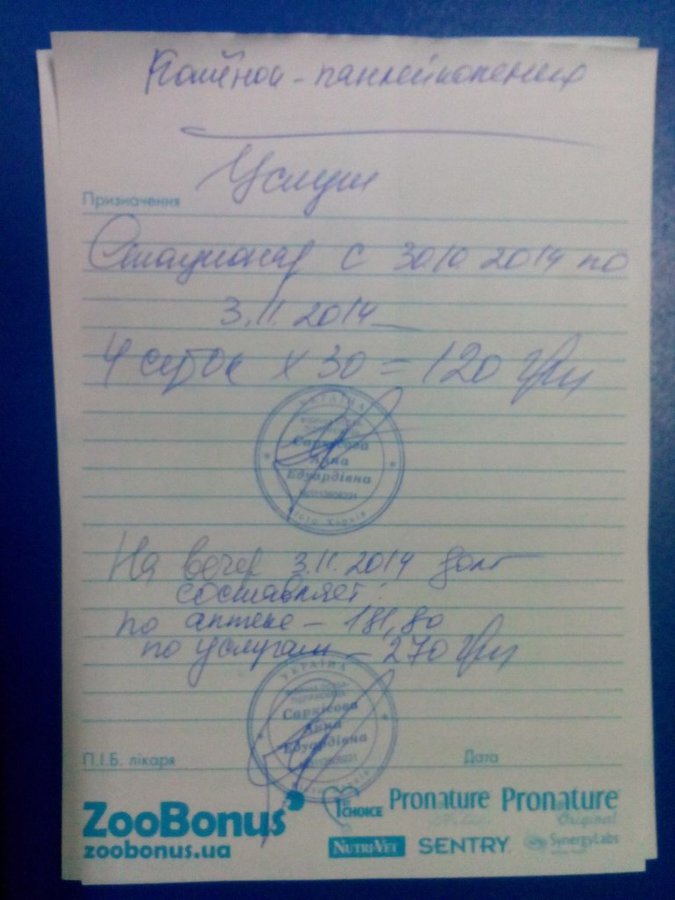 панлейкопения
Услуги
Призначення
Стационар с 30.10.2014 по
3.11.2014
4 суток х 30 = 120 грн
УКРАЇНА
Саркісова
Анна
Едуардівна
місто Харків
На вечер 3.11.2014 долг
составляет:
по аптеке - 181,80
по услугам - 270 грн
УКРАЇНА
Саркісова
Анна
Едуардівна
П.І.Б. лікаря
Дата
ZooBonus
zoobonus.ua
1st CHOICE
Pronature
Pronature
Original
NUTRI-VET
SENTRY
SynergyLabs